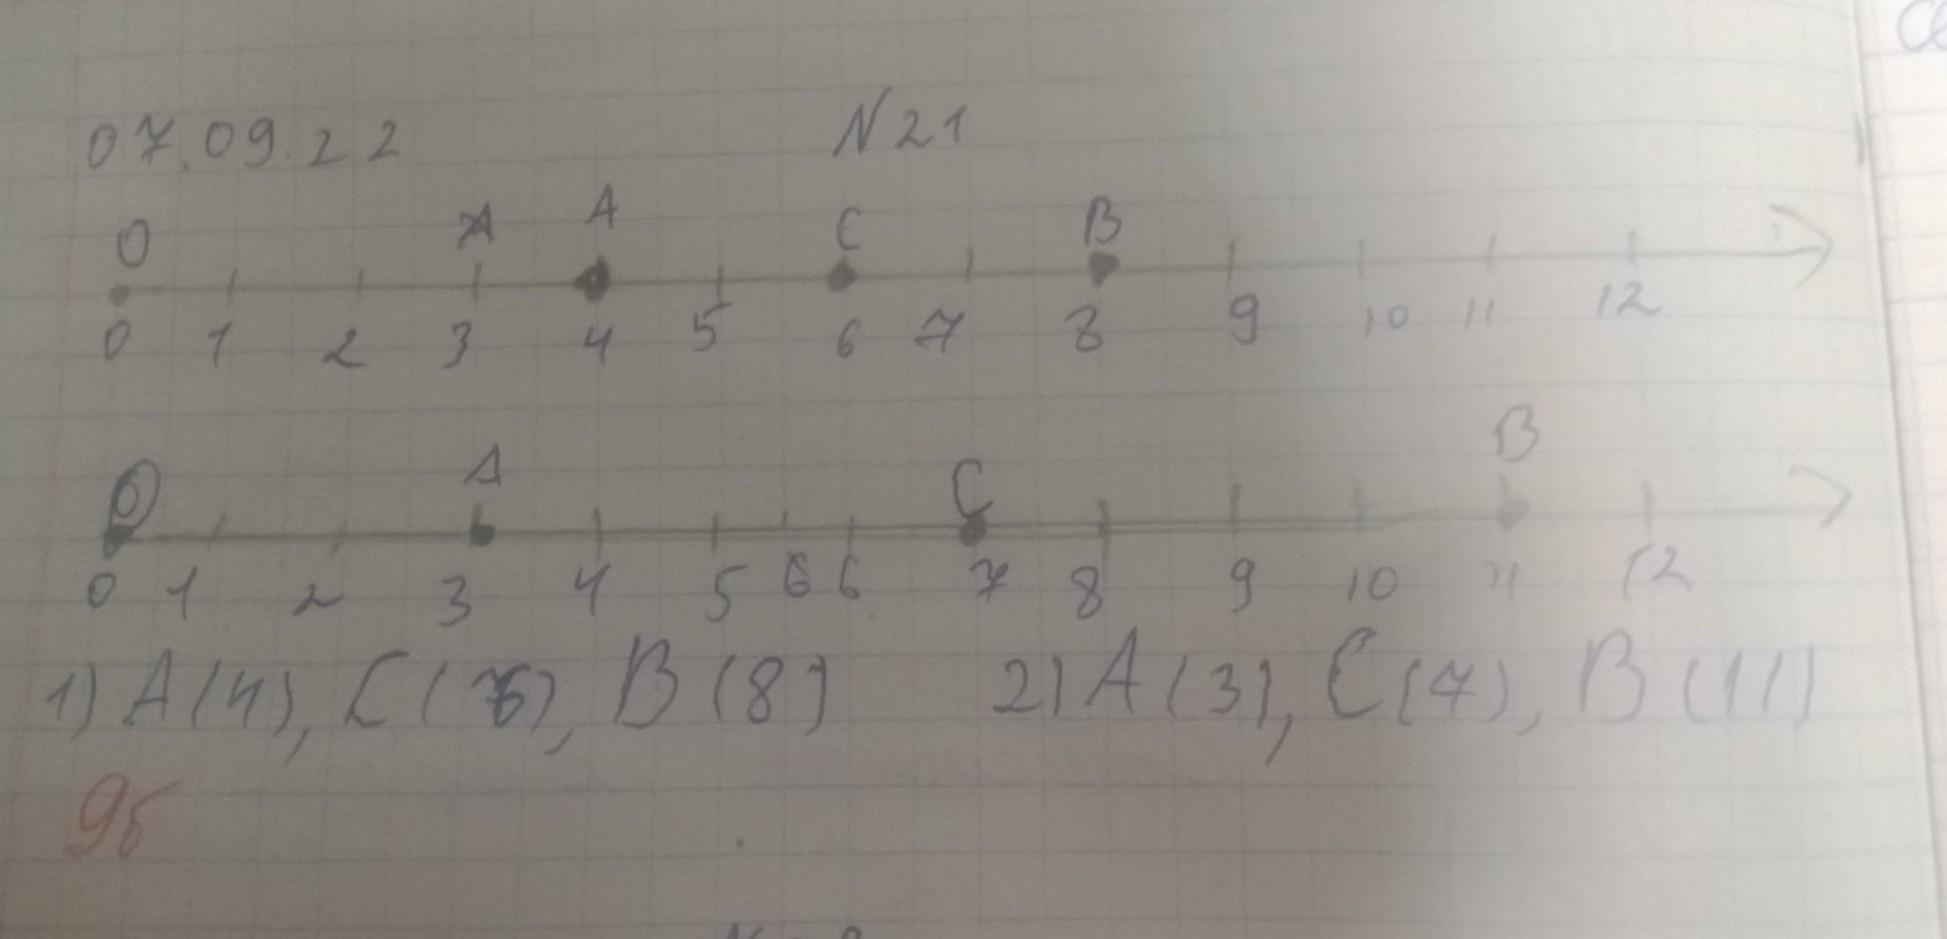 07.09.22 N21
O A A C B
0 1 2 3 4 5 6 7 8 9 10 11 12
O A C B
0 1 2 3 4 5 6 6 7 8 9 10 11 12
1) A(4), C(6), B(8) 2) A(3), C(7), B(11)
9б